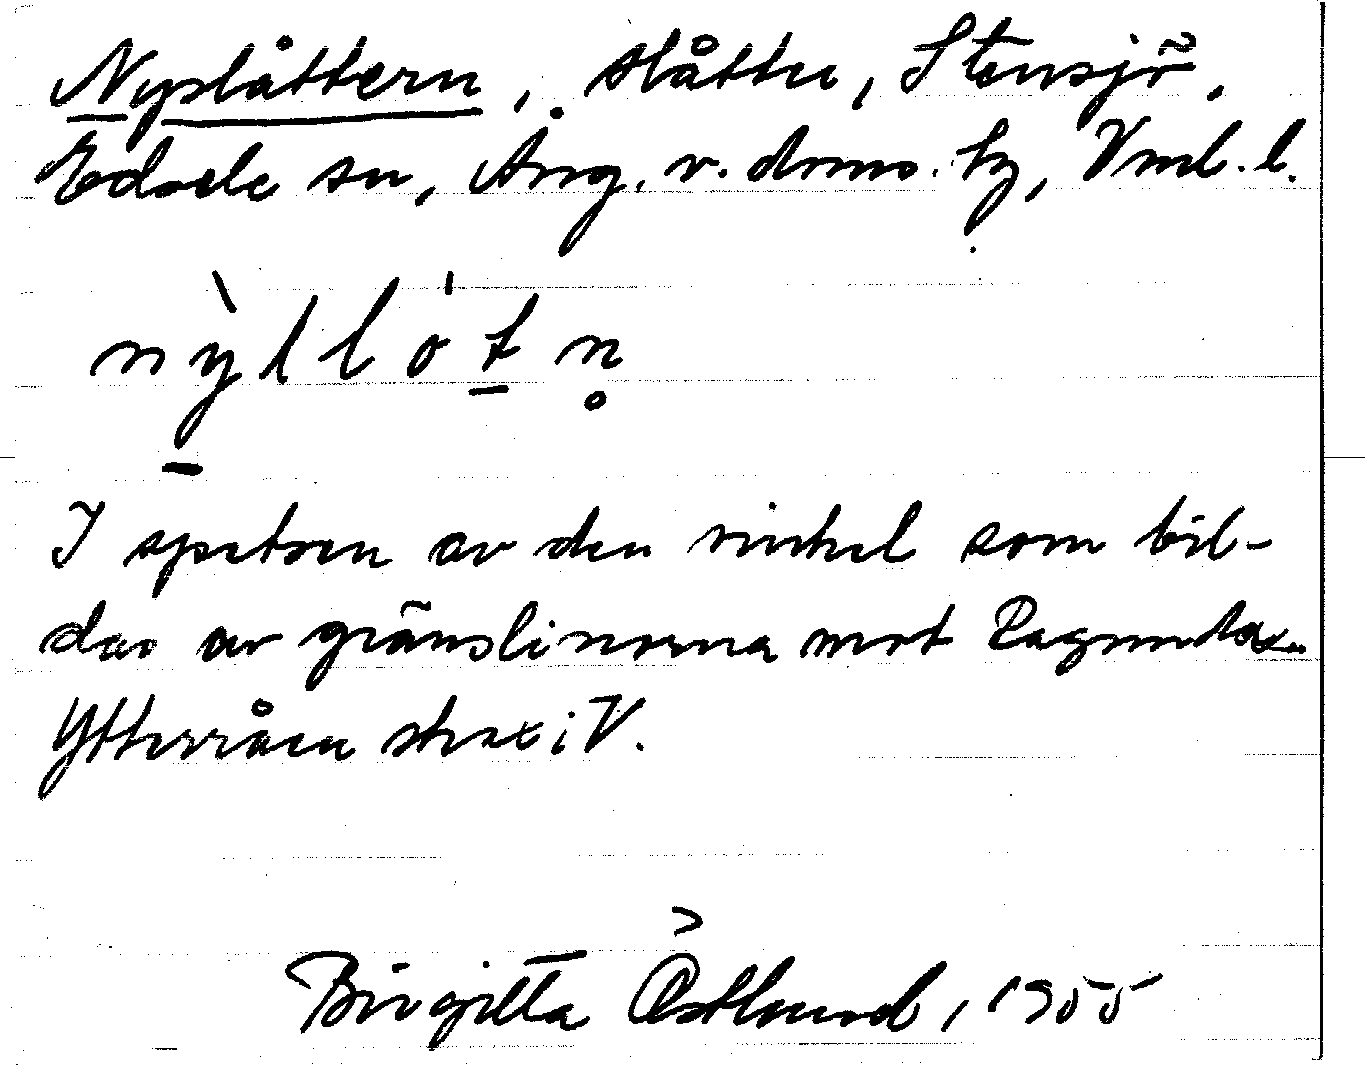 Nyslåttern, slåtter, Stensjö,
Edsele sn, Ång. v. doms. hg, Vnd. l.
nỳllótn̥
I spetsen av den vinkel som bil-
das av gränslinorna mot Ragunda o.
Ytterråsen strax i V.
Birgitta Östlund, 1955